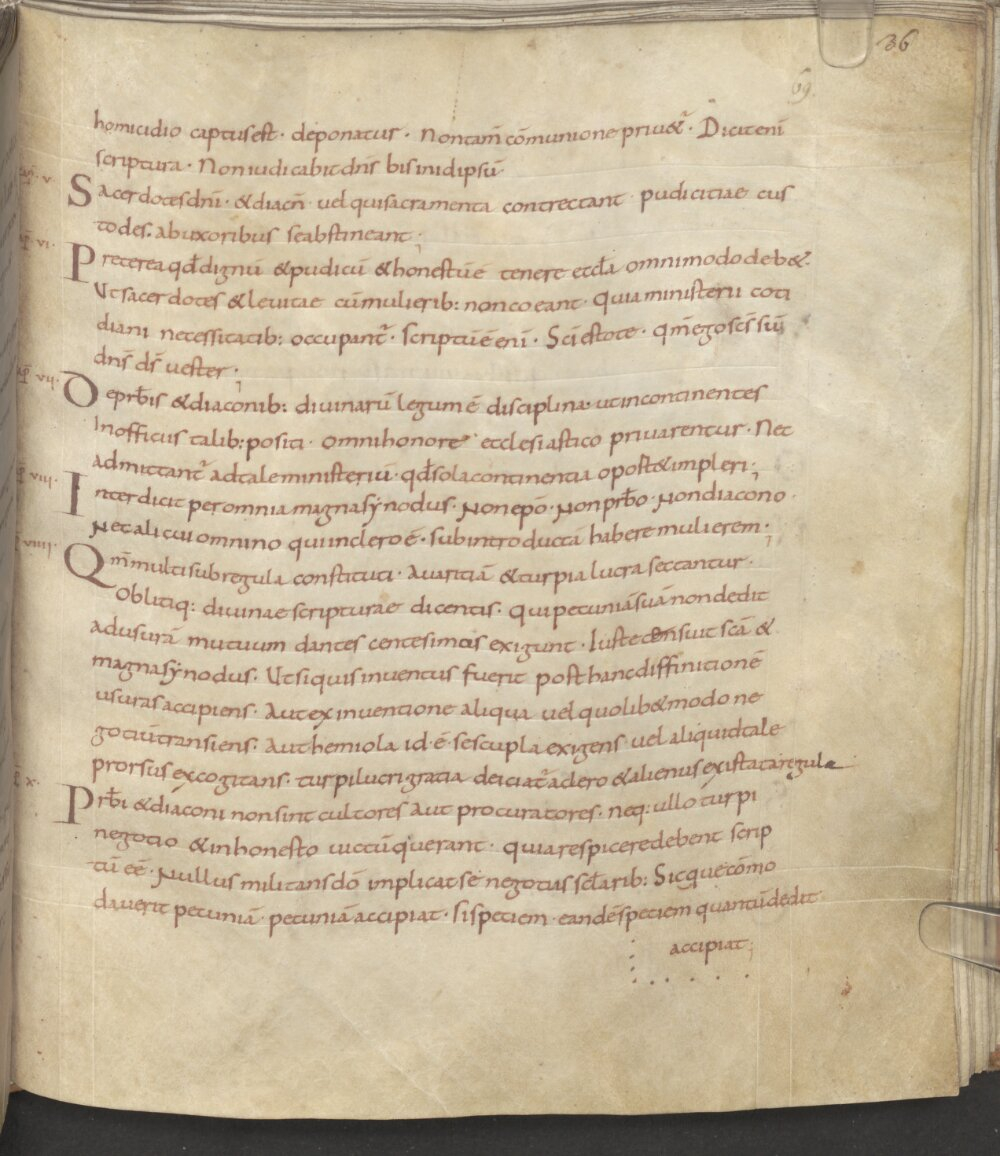 36
69
homicidio captus est · deponatur · Non tam̄ cōmunione priu&ur · Dicit enī
scriptura · Non iudicabit dn̄s bis in id ipsū
cap̄ · v · Sacerdotes dn̄i · & diacn̄ · uel qui sacramenta contrectant · pudicitiae cus
todes · ab uxoribus se abstineant ·
cap̄ · vi · Preterea qđ dignū & pudicū & honestū ē tenere eccła omnimodo deb& ·
Ut sacerdotes & leuitae cū mulierib: non coeant · quia ministerii coti
diani necessitatib: occupant̄ · scriptū ē enī · Sc̄i estote · qm̄ ego sc̄s sū
dn̄s ds̄ uester ·
cap̄ · vii · De prb̄is & diaconib: diuinarū legum ē disciplina · ut incontinentes
In officiis talib: positi · omni honore ecclesiastico priuarentur · Nec
admittant̄ ad tale ministeriū · qđ sola continentia oport& impleri ·
cap̄ · viii · Interdicit per omnia magna synodus · Non ep̄o · Non prb̄o · Non diacono ·
Nec alicui omnino qui in clero ē · subintroductā habere mulierem ·
viiii · Qm̄ multi sub regula constituti · Auaritiā & turpia lucra sectantur ·
Obliti q: diuinae scripturae dicentis · qui pecuniā suā non dedit
ad usurā mutuum dantes centesimas exigunt · Iuste censuit sc̄a &
magna synodus · Ut si quis inuentus fuerit post hanc diffinitionē
usuras accipiens · Aut ex inuentione aliqua uel quolib& modo ne
gotiū transiens · Aut hemiola id · ē · sescupla exigens uel aliquid tale
prorsus excogitans · turpi lucri gratia deiciat̄ a clero & alienus existat a regula
x · Prb̄i & diaconi non sint cultores aut procuratores · neq: ullo turpi
negocio & inhonesto uictū querant · quia respicere debent scrip
tū eē · Nullus militans dō implicat se negotiis scl̄arib: Sicque cōmo
dauerit pecuniā · pecuniā accipiat · si speciem · eandē speciem quantū dedit
accipiat ;